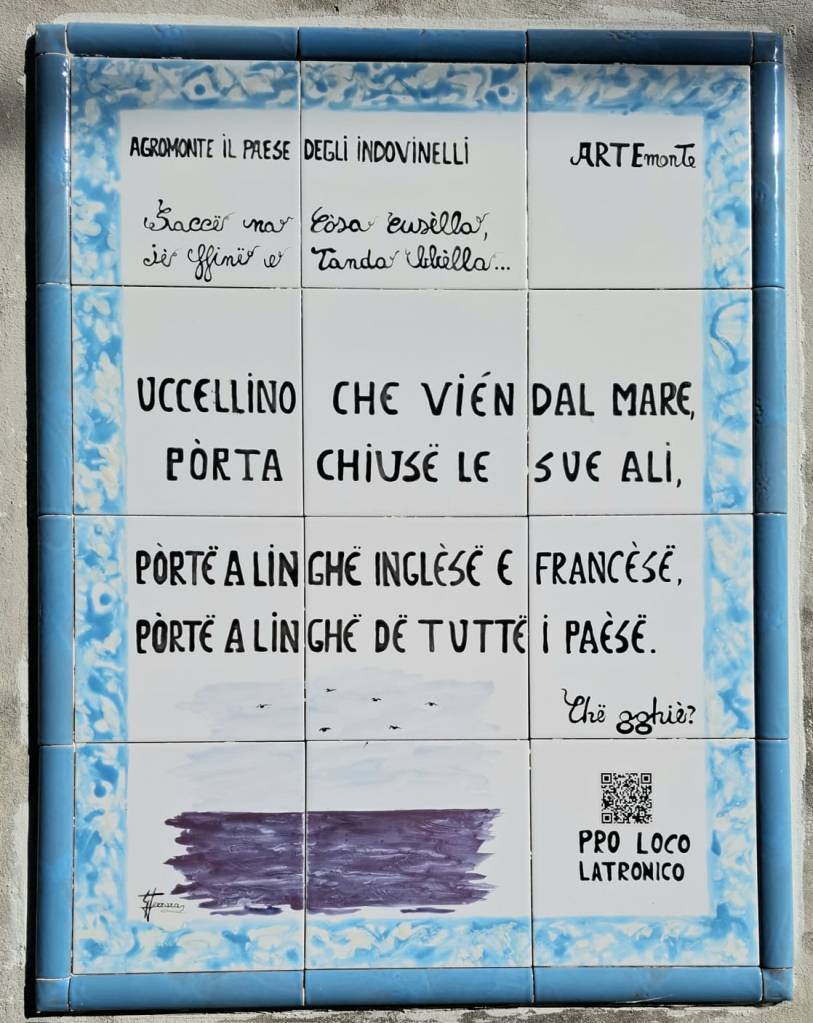 AGROMONTE IL PAESE DEGLI INDOVINELLI
ARTEmonTe
Saccë na Còsa cusèlla,
jè ffinë e Tanda bbèlla...
UCCELLINO CHE VIÉN DAL MARE,
PÒRTA CHIUSË LE SUE ALI,
PÒRTË A LINGHË INGLÈSË E FRANCÈSË,
PÒRTË A LINGHË DË TUTTË I PAÈSË.
Chë gghiè?
PRO LOCO
LATRONICO